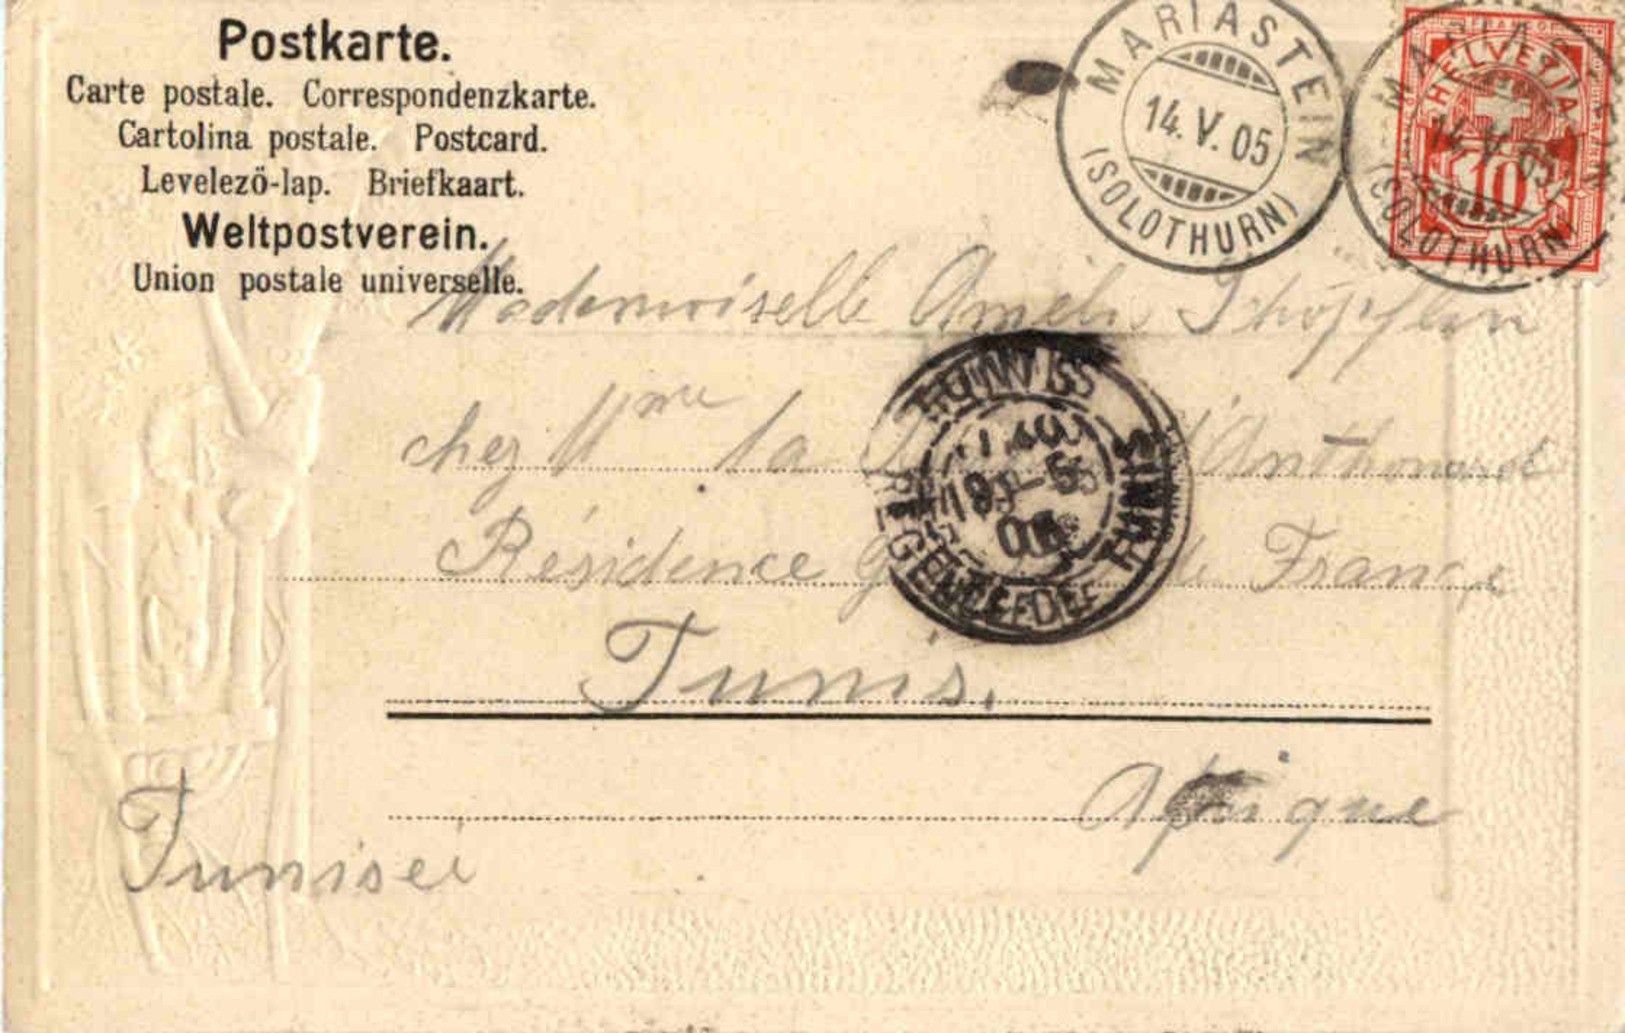 Postkarte.
Carte postale. Correspondenzkarte.
Cartolina postale. Postcard.
Levelezö-lap. Briefkaart.
Weltpostverein.
Union postale universelle.
MARIASTEIN
14.V.05
(SOLOTHURN)
FRANCO
HELVETIA
10
MARIASTEIN
14.V.05
(SOLOTHURN)
Mademoiselle Amélie Schöpflin
chez Mme la d'Anthouard
Résidence de France
TUNIS
REGENCE DE TUNIS
Tunis.
Afrique
Tunisei